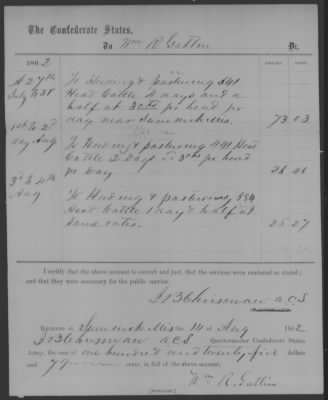 The Confederate States,
To Wm R. Gatlin Dr.
1862
27th To Herding & pasturing 541
July & 31st Head Cattle 4 days and a
half at 3cts pr head pr
day near Miss. 73 03
1st to 2d To Herding & pasturing 441 Head
day Aug Cattle 2 days at 3cts pr head
pr Day 26 46
3d to 4th To Herding & pasturing 584
Aug Head Cattle 1 day & half at
same rates. 26 27
I certify that the above account is correct and just, that the services were rendered as stated;
and that they were necessary for the public service.
A C S
Received at Miss 14 of Aug 1862
A C S Quartermaster Confederate States
Army, the sum of one hundred and twenty five dollars
and 79 cents, in full of the above account,
Wm R. Gatlin